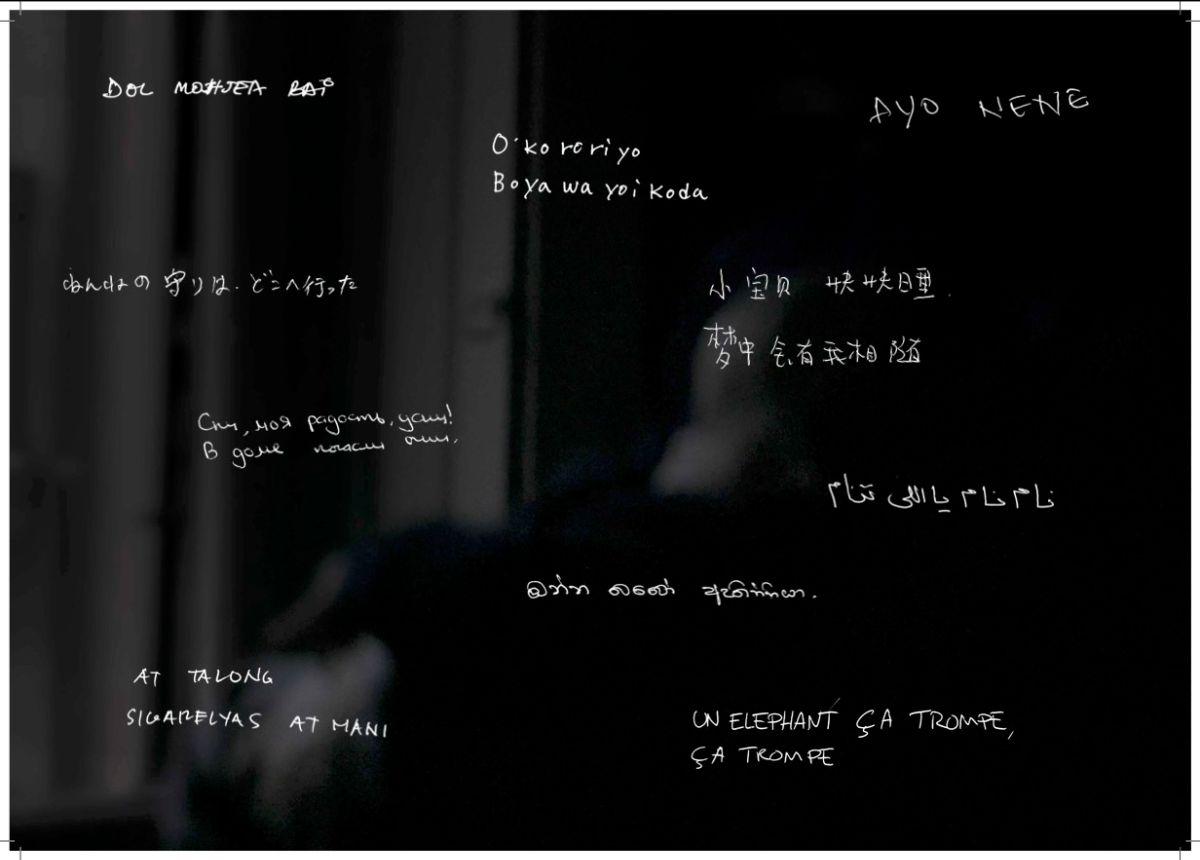 AYO NENE
O'ko roriyo
Boya wa yoi koda
ねんねの守りは.どこへ行った
小宝贝 快快睡
梦中会有我相随
Спи, моя радость, усни!
В доме погасли огни.
نام نام يا اللى تنام
AT TALONG
SIGARELYAS AT MANI
UN ELEPHANT ÇA TROMPE,
ÇA TROMPE